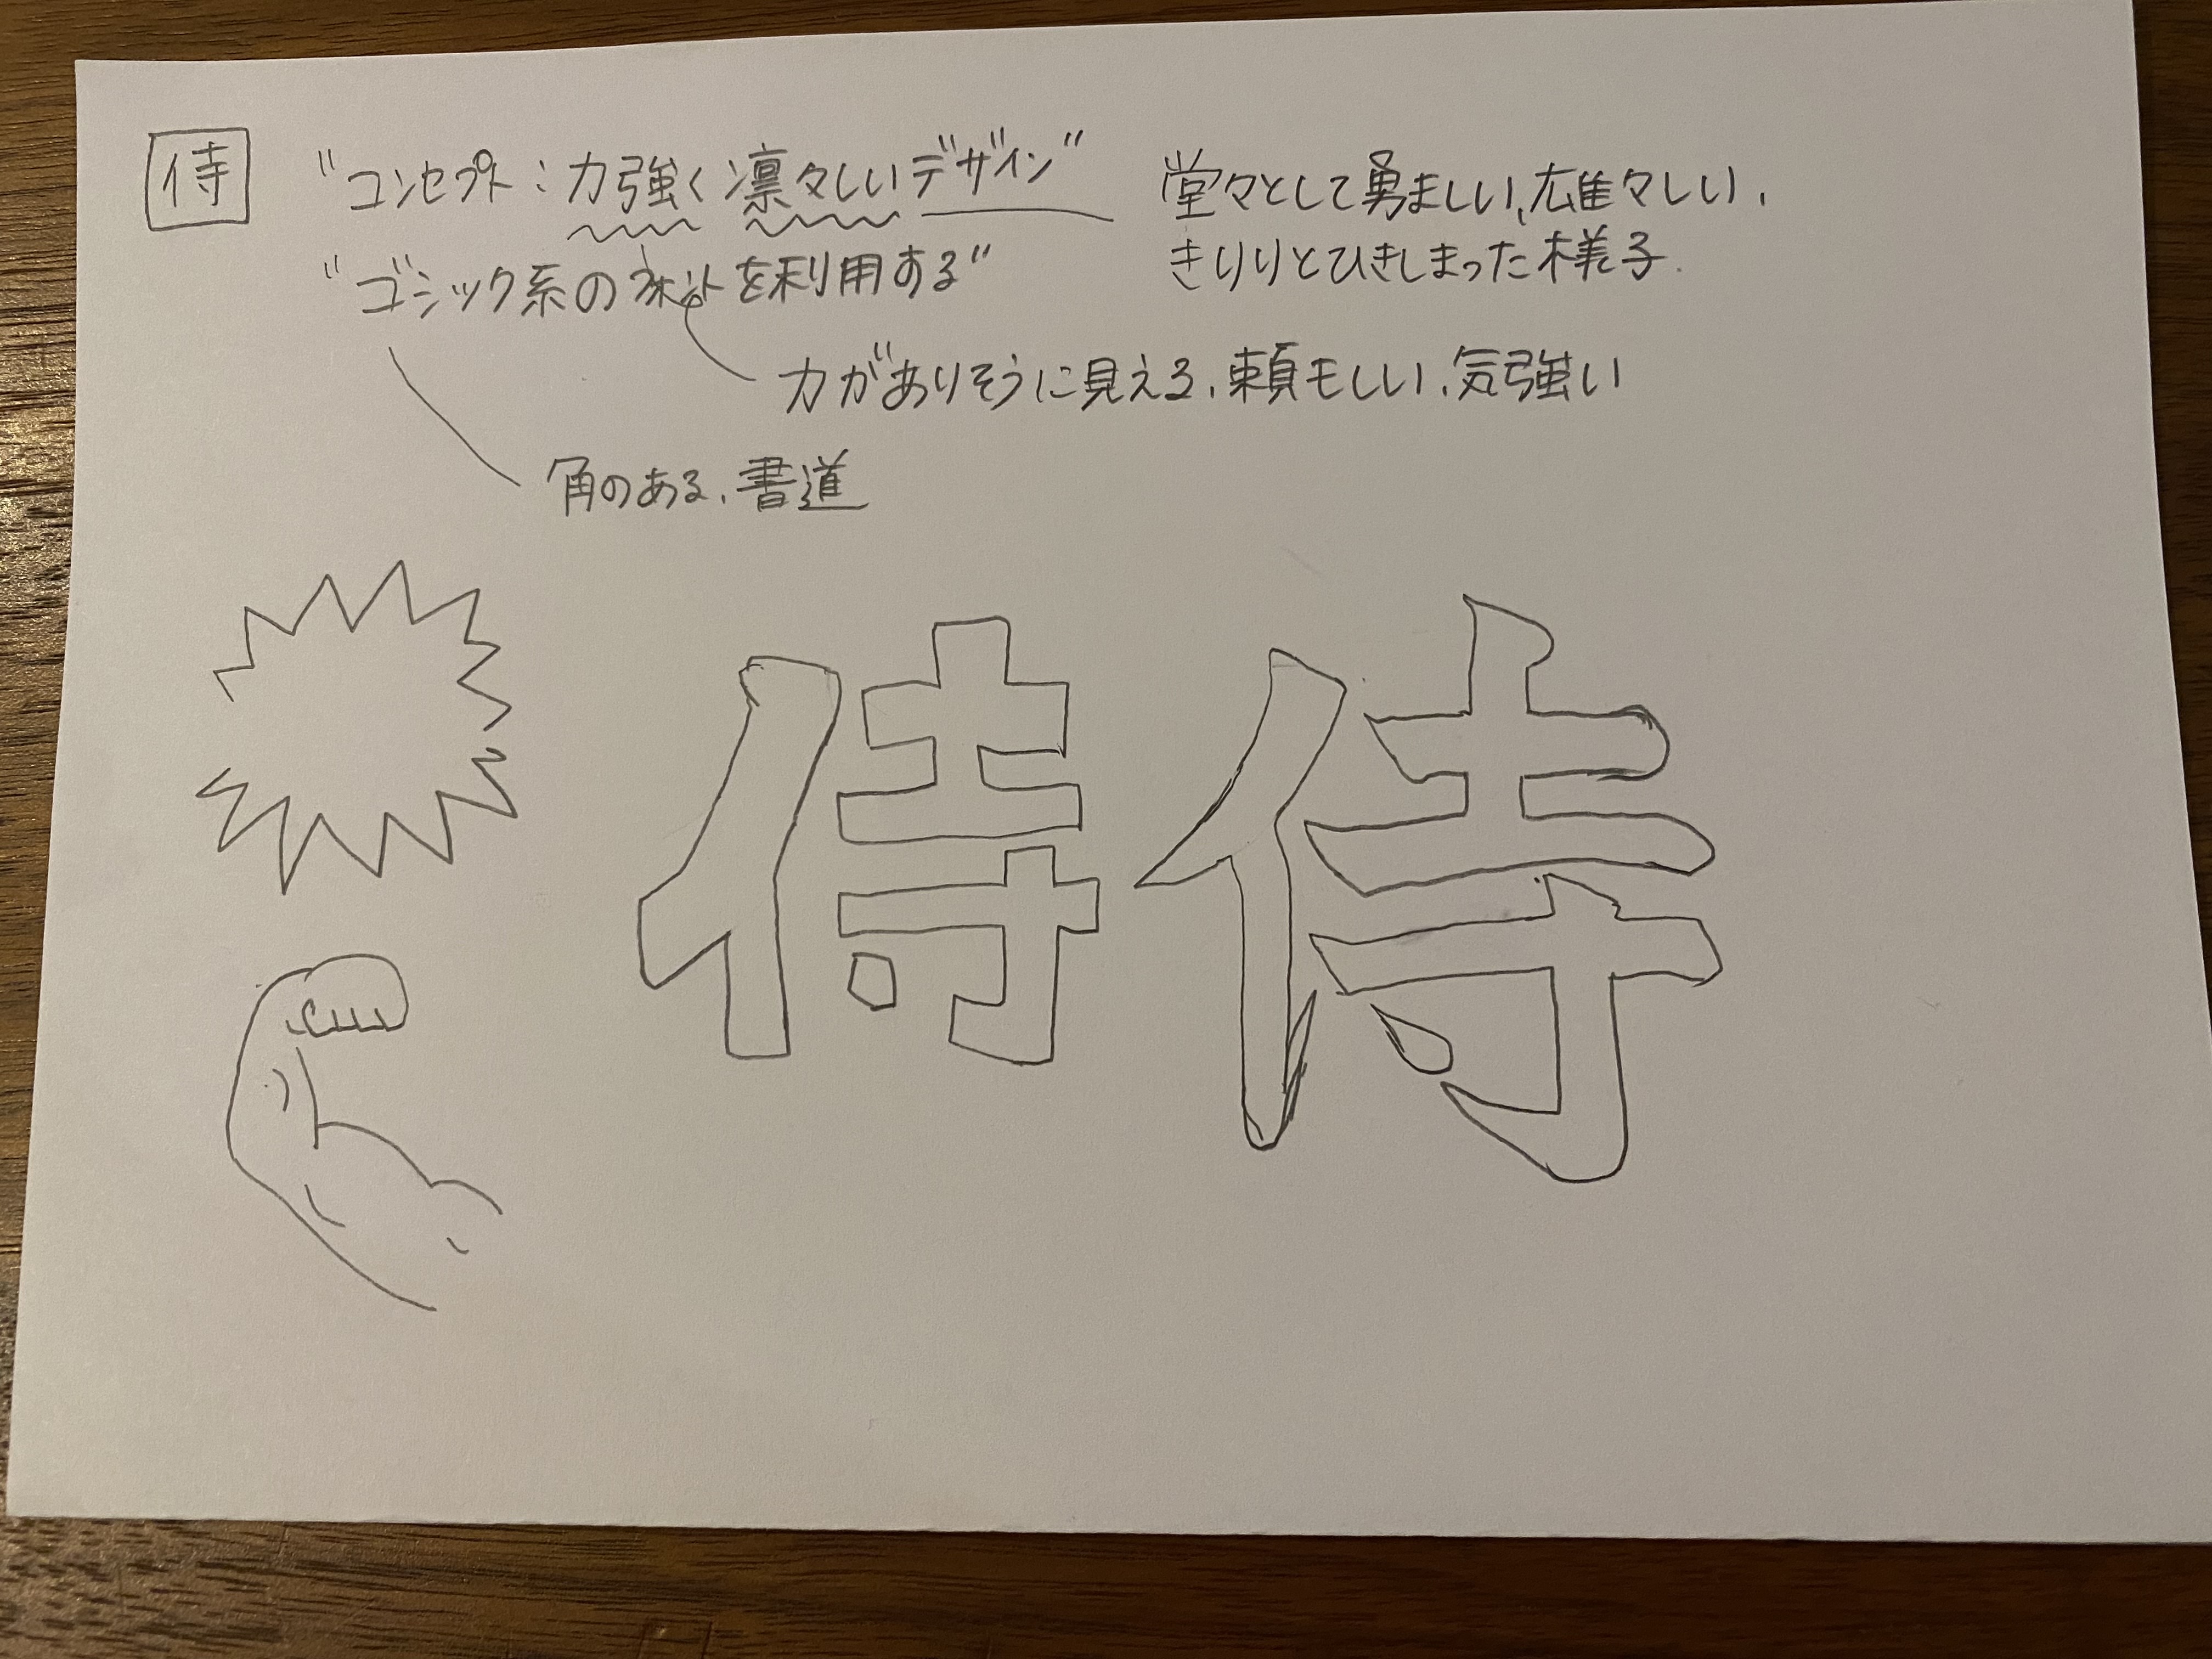 侍
"コンセプト：力強く凛々しいデザイン"
堂々として勇ましい、雄々しい、
きりりとひきしまった様子.
"ゴシック系のフォントを利用する"
力がありそうに見える、頼もしい、気強い
角のある、書道
侍 侍